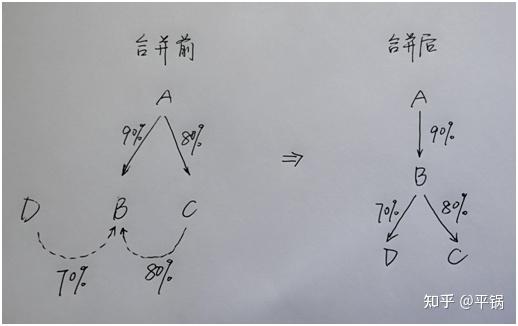 合并前 合并后
A A
90% 80% 90%
D B C B
70% 80%
70% 80% D C
知乎 @平锅